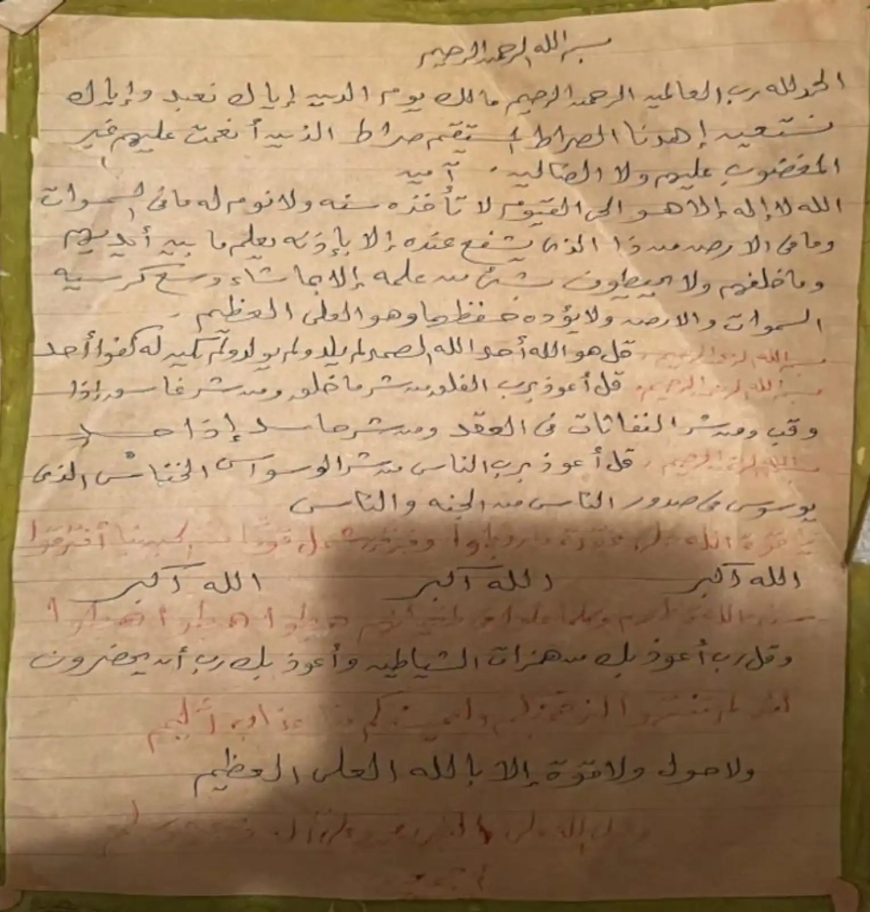 بسم الله الرحمن الرحيم
الحمد لله رب العالمين الرحمن الرحيم مالك يوم الدين إياك نعبد وإياك
نستعين إهدنا الصراط المستقيم صراط الذين أنعمت عليهم غير
المغضوب عليهم ولا الضالين . آمين
الله لا إله إلا هو الحى القيوم لا تأخذه سنه ولا نوم له ما فى السموات
وما فى الارض من ذا الذى يشفع عنده إلا بإذنه يعلم ما بين أيديهم
وما خلفهم ولا يحيطون بشئ من علمه إلا بما شاء وسع كرسيه
السموات والارض ولا يؤده حفظهما وهو العلى العظيم .
بسم الله الرحمن الرحيم . قل هو الله أحد الله الصمد لم يلد ولم يولد ولم يكن له كفوا أحد
بسم الله الرحمن الرحيم . قل أعوذ برب الفلق من شر ما خلق ومن شر غاسق إذا
وقب ومن شر النفاثات فى العقد ومن شر حاسد إذا حسد
بسم الله الرحمن الرحيم . قل أعوذ برب الناس من شر الوسواس الخناس الذى
يوسوس فى صدور الناس من الجنه والناس
الله أكبر الله أكبر الله أكبر
وقل رب أعوذ بك من همزات الشياطين وأعوذ بك رب أن يحضرون
عذاب أليم
ولا حول ولا قوة إلا بالله العلى العظيم